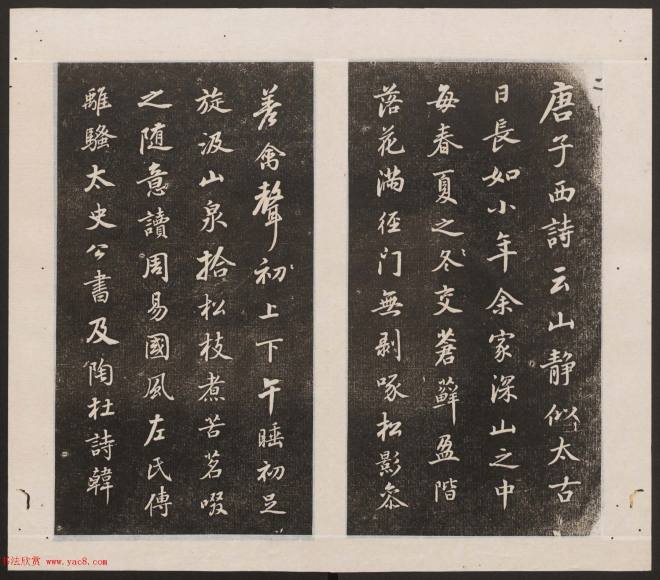 二
唐子西詩云山靜似太古
日長如小年余家深山之中
每春夏之冬交蒼蘚盈階
落花滿徑门無剥啄松影叅
差禽聲初上下午睡初足
旋汲山泉拾松枝煮苦茗啜
之随意讀周易國風左氏傳
離騷太史公書及陶杜詩韓
书法欣赏 www.yac8.com